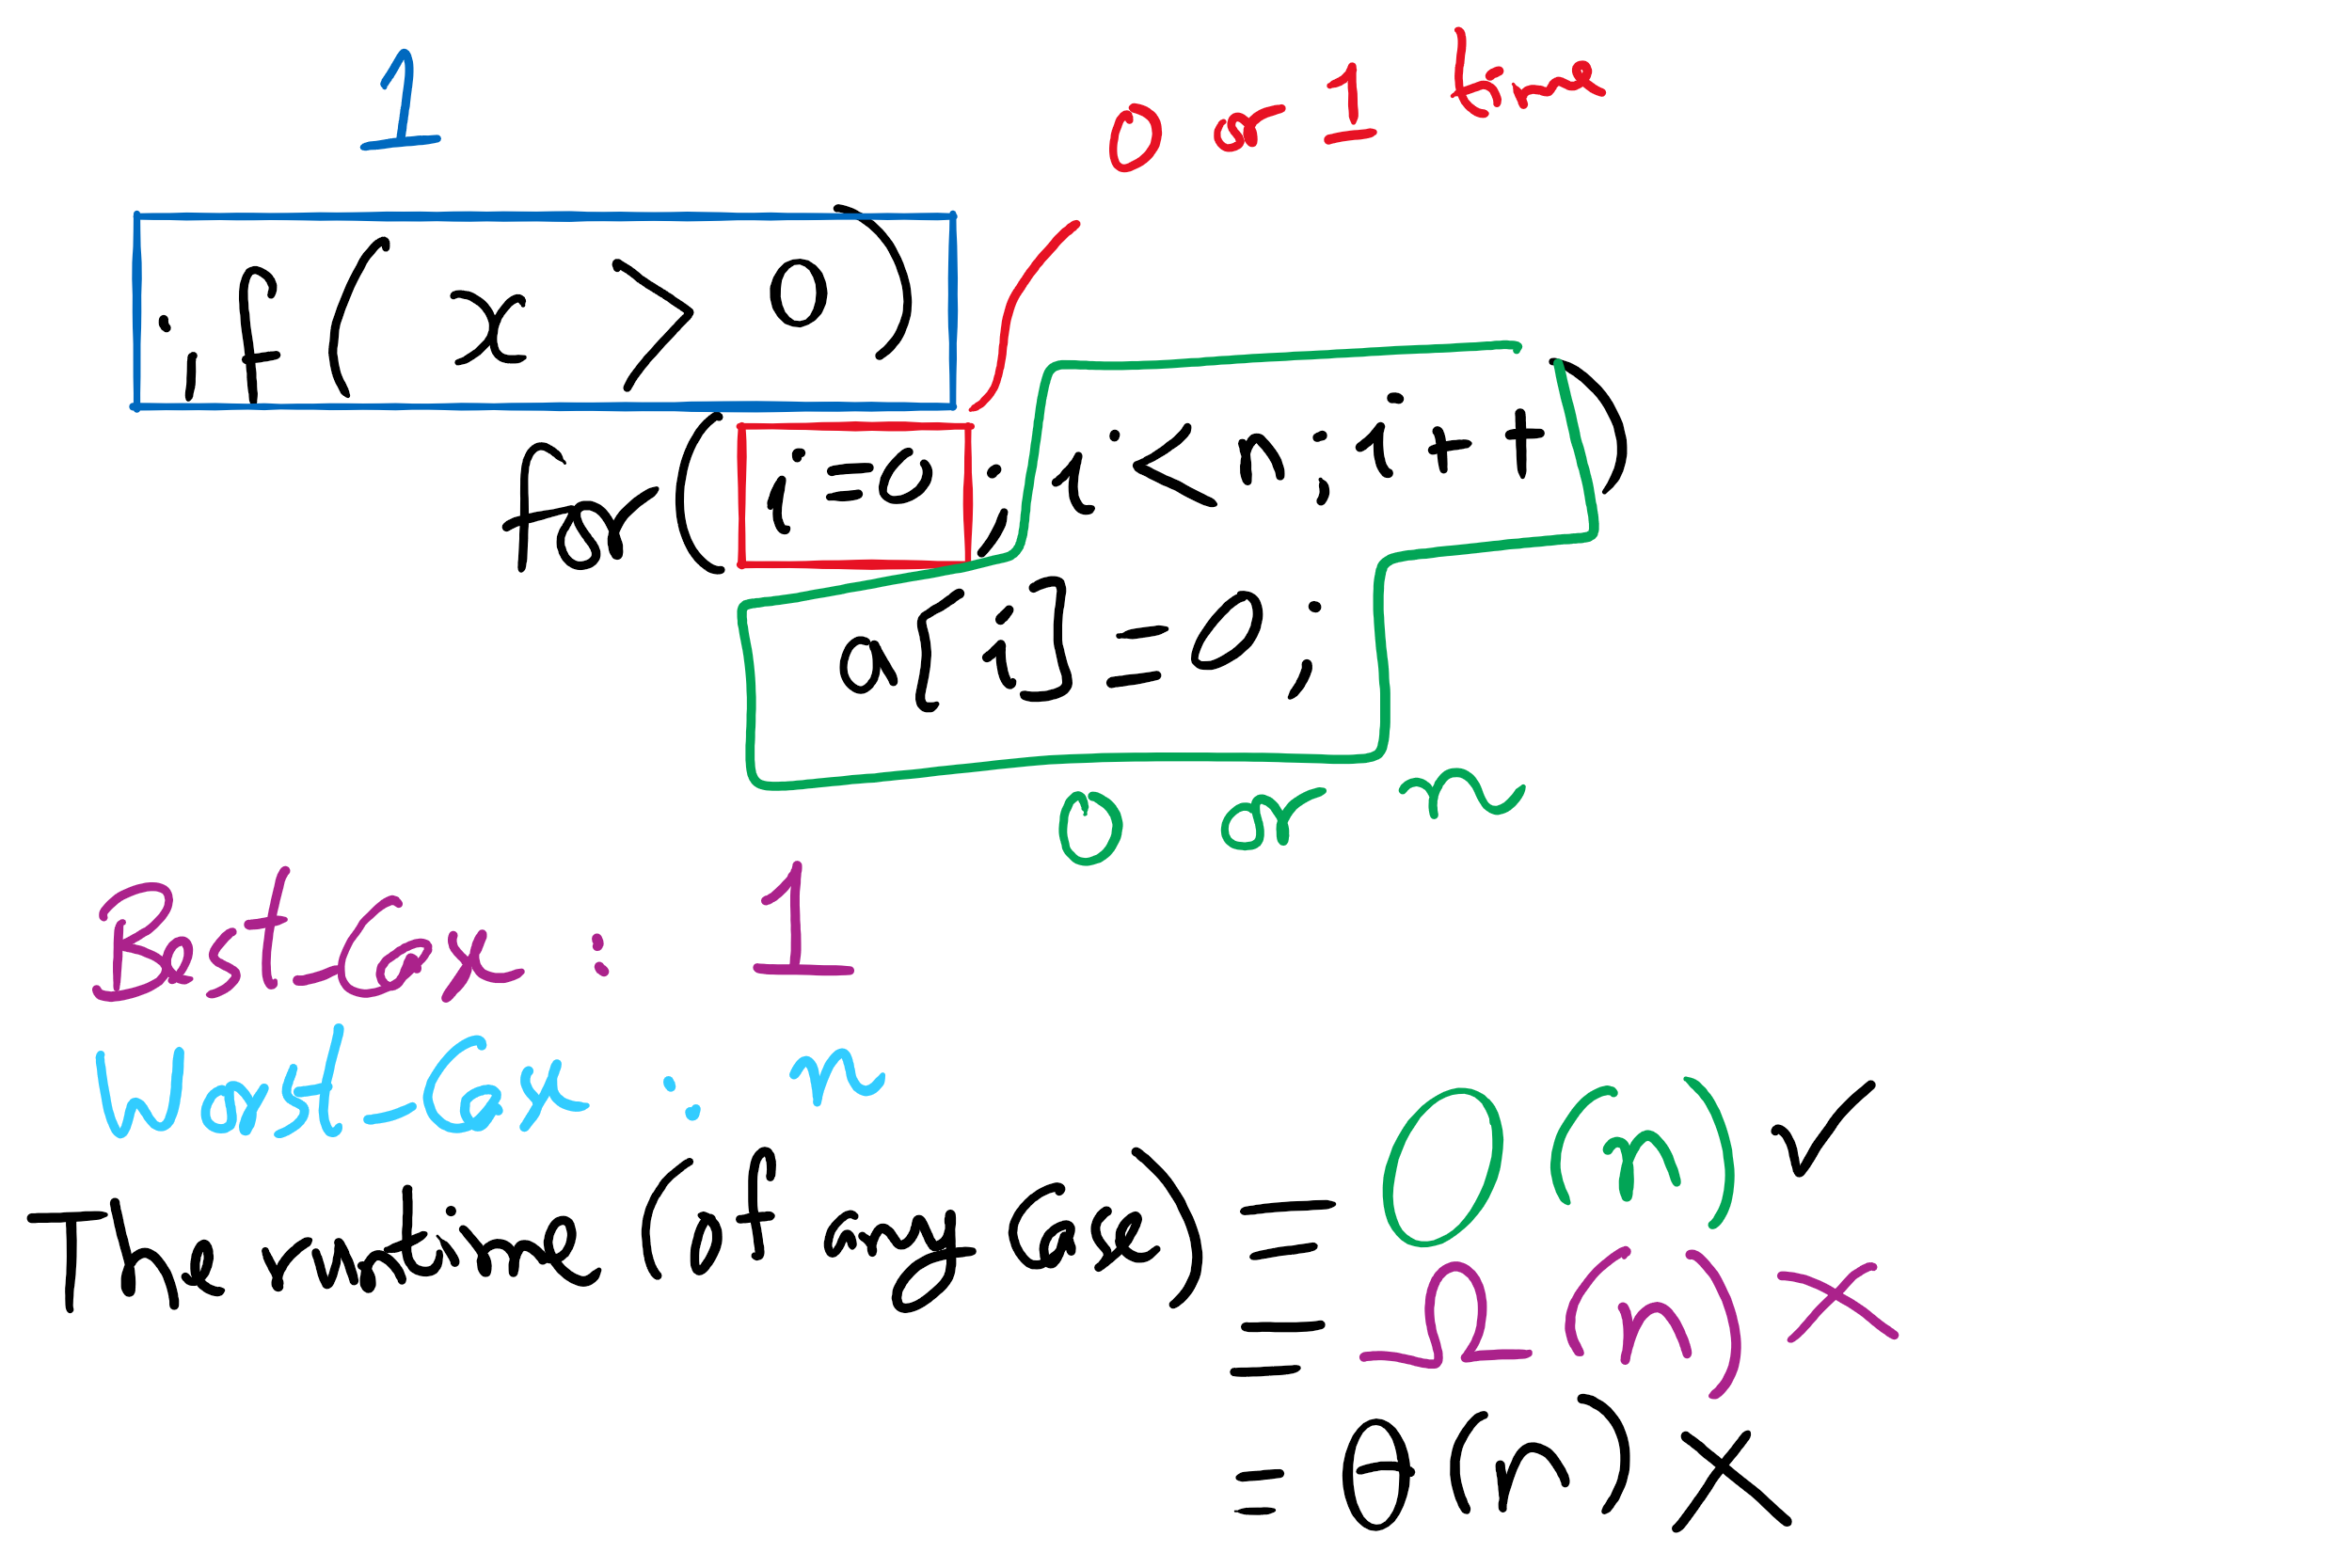 1
0 or 1 time
if ( x > 0 )
for ( i = 0 ; i < n ; i + + )
a[i] = 0 ;
0 or n
Best-Case : 1
Worst-Case : n
The runtime (of any Case) = O(n) ✓
= Ω(n) ✗
= θ(n) ✗